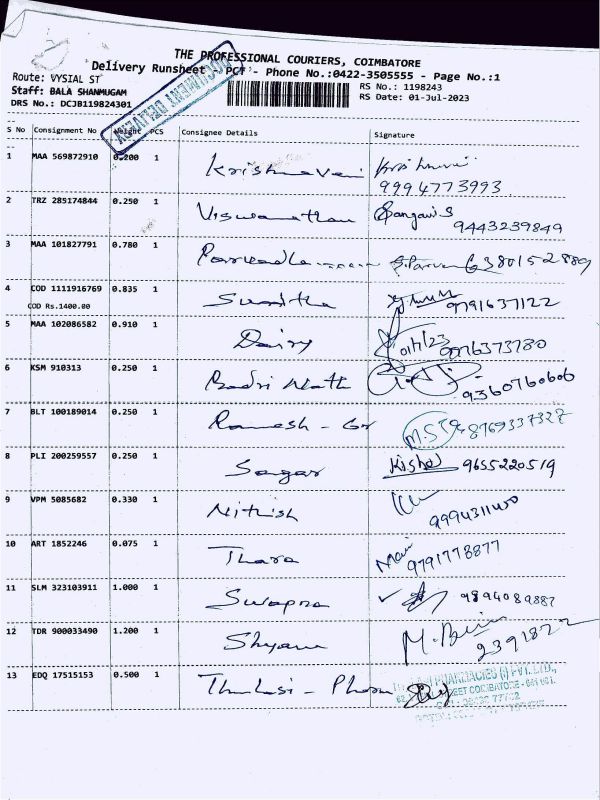 THE PROFESSIONAL COURIERS, COIMBATORE
Delivery Runsheet PCT - Phone No.:0422-3505555 - Page No.:1
Route: VYSIAL ST
Staff: BALA SHANMUGAM
DRS No.: DCJB119824301
RS No.: 1198243
RS Date: 01-Jul-2023
DOCUMENT DELIVERY
S No Consignment No Weight PCS Consignee Details Signature
1 MAA 569872910 0.200 1 Krishnaveni
9994773993
2 TRZ 285174844 0.250 1 Viswanathan
9443239849
3 MAA 101827791 0.780 1
4 COD 1111916769 0.835 1 Sunitha 9791637122
COD Rs.1400.00
5 MAA 102086582 0.910 1 Dairy
6 KSM 910313 0.250 1 Badri Nath 9360760606
7 BLT 100189014 0.250 1 Ramesh - Gr M.S
8 PLI 200259557 0.250 1 Sengar 9655220519
9 VPM 5085682 0.330 1 Nithish
10 ART 1852246 0.075 1 Thara 9791778877
11 SLM 323103911 1.000 1 Swapna 9894089887
12 TDR 900033490 1.200 1 Shyam
13 EDQ 17515153 0.500 1 Thulasi - Pharm
PHARMACIES (I) PVT. LTD.,
STREET COIMBATORE - 641 001.